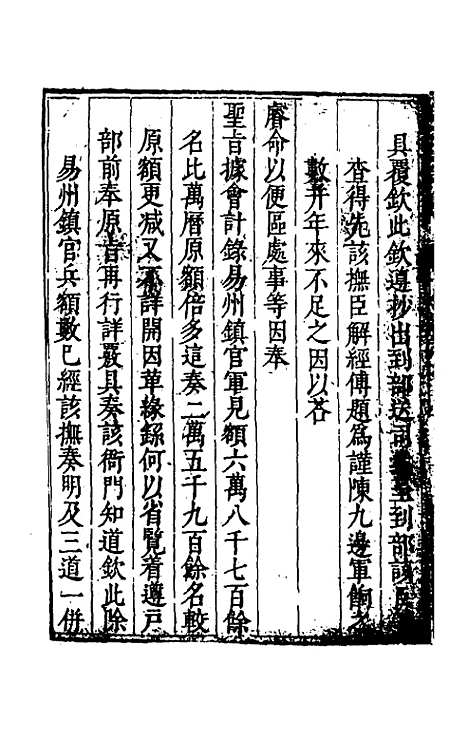 具覆欽此欽遵抄出到部送司到部該
查得先該撫臣解經傅題為謹陳九邊軍餉之
數并年來不足之因以荅
睿命以便區處事等因奉
聖旨據會計錄易州鎮官軍見額六萬八千七百餘
名比萬曆原額倍多這奏二萬五千九百餘名較
原額更减又不詳開因革緣繇何以省覽着遵戶
部前奉原旨再行詳覈具奏該衙門知道欽此除
易州鎮官兵額數已經該撫奏明及三道一併